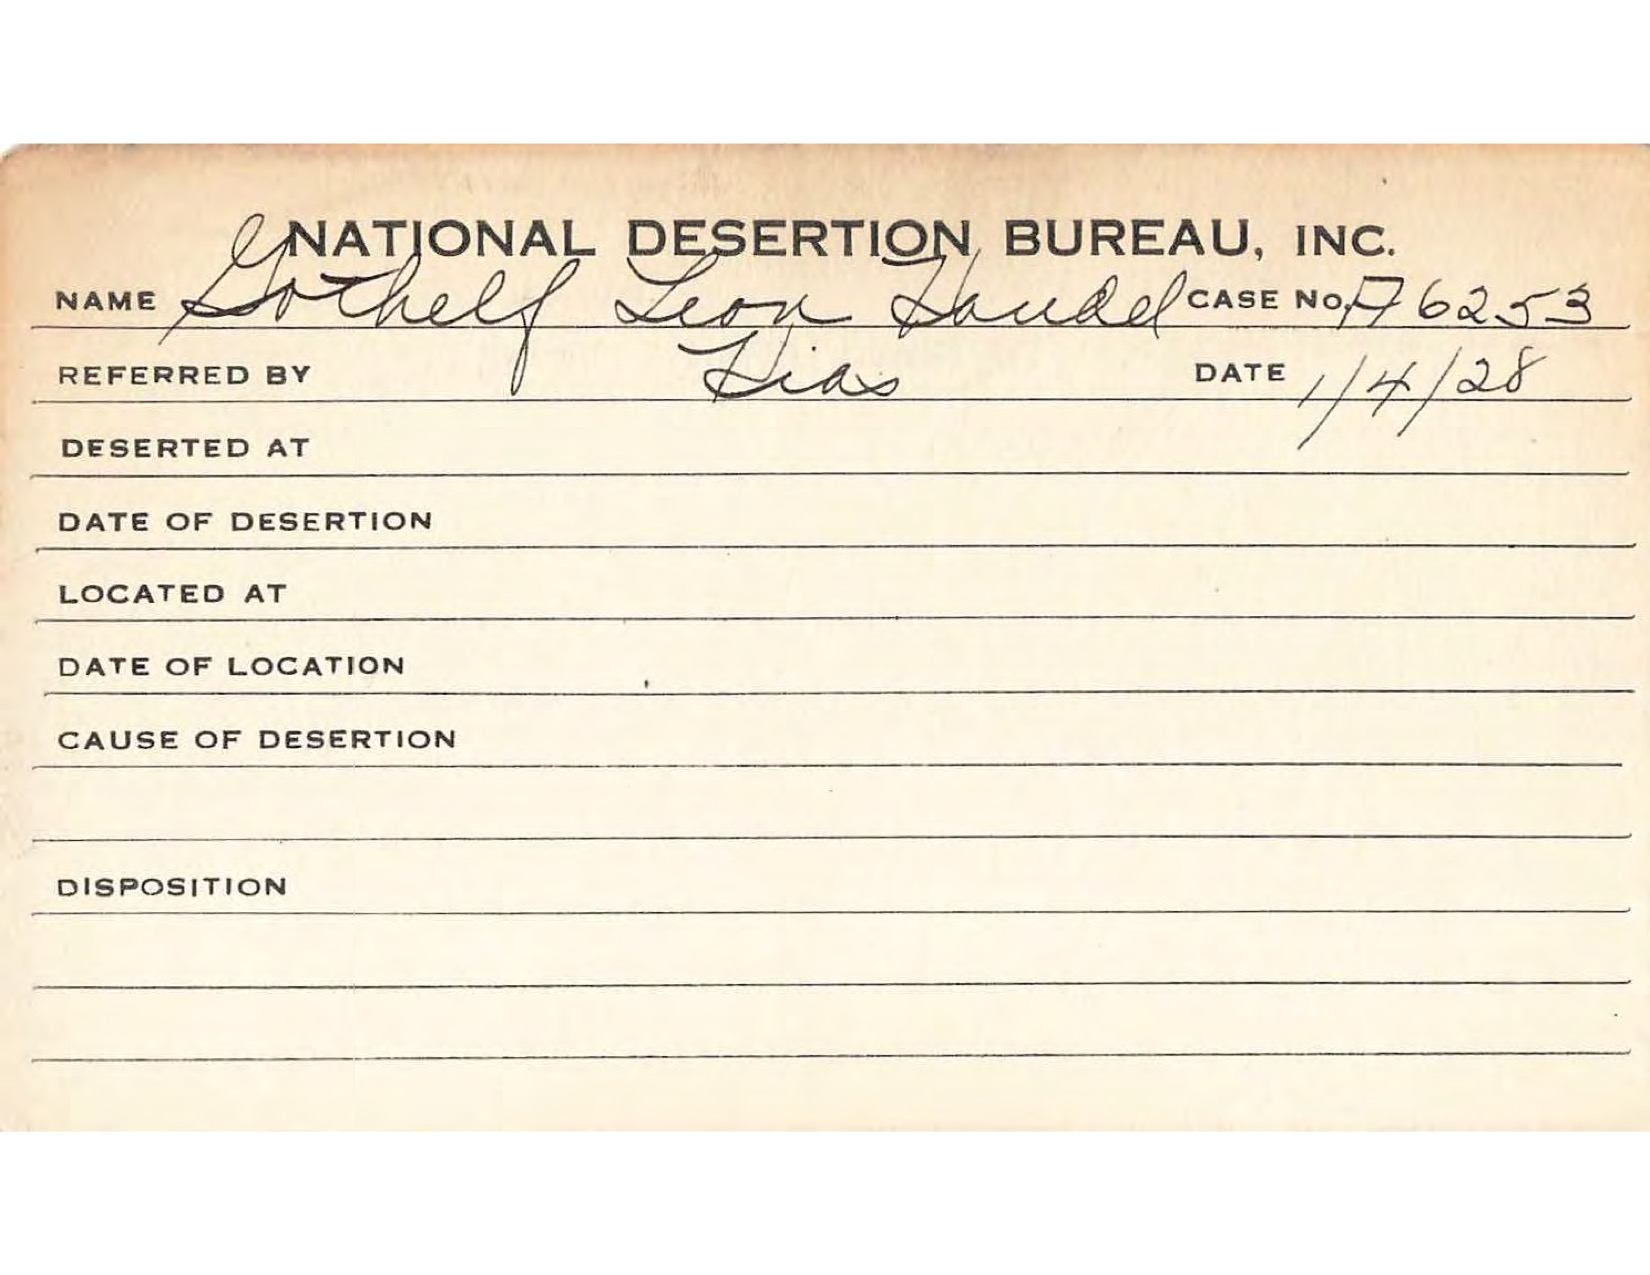 NATIONAL DESERTION BUREAU, INC.
NAME Gothelf Leon Handel CASE NO. A6253
REFERRED BY Hias DATE 1/4/28
DESERTED AT
DATE OF DESERTION
LOCATED AT
DATE OF LOCATION
CAUSE OF DESERTION
DISPOSITION